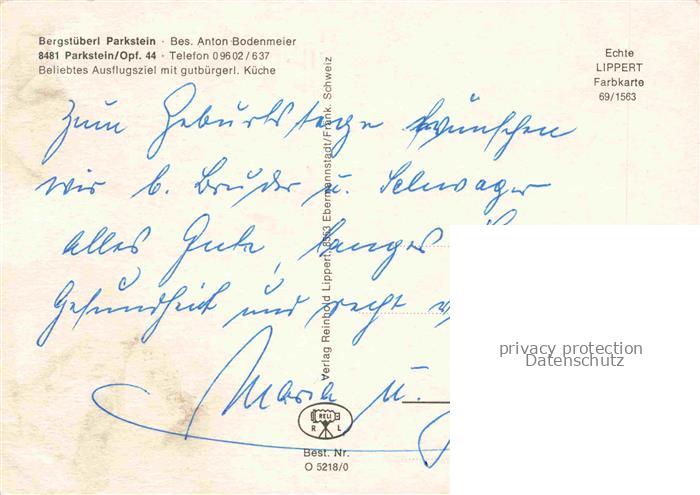 Bergstüberl Parkstein · Bes. Anton Bodenmeier
8481 Parkstein/Opf. 44 · Telefon 09602/637
Beliebtes Ausflugsziel mit gutbürgerl. Küche
Echte
LIPPERT
Farbkarte
69/1563
Zum Geburtstage wünschen
wir l. Bruder u. Schwager
alles Gute, langes
Gesundheit und recht
Maria u.
Verlag Reinhold Lippert, 8553 Ebermannstadt/Fränk. Schweiz
RELI
R L
Best. Nr.
O 5218/0
privacy protection
Datenschutz